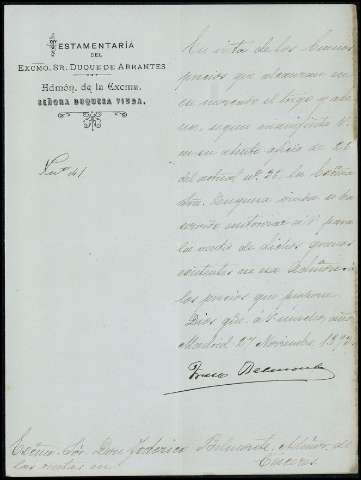 TESTAMENTARÍA
DEL
EXCMO. SR. DUQUE DE ABRANTES
Admón. de la Excma.
SEÑORA DUQUESA VIUDA.
Num. 41
En vista de los buenos
precios que alcanzan en
ese mercado el trigo y
segun manifiesta V.
en su atento oficio de 21
del actual nº 26, la Exma
Sra. Duquesa viuda se ha
servido autorizar á V. para
la venta de dichos granos
existentes en esa Admon. á
los precios que propone.
Dios gue. á V. muchos años
Madrid 27 Noviembre
Belmonte
Excmo. Sor. Don Federico Belmonte, Admor. de
las rentas en Cáceres